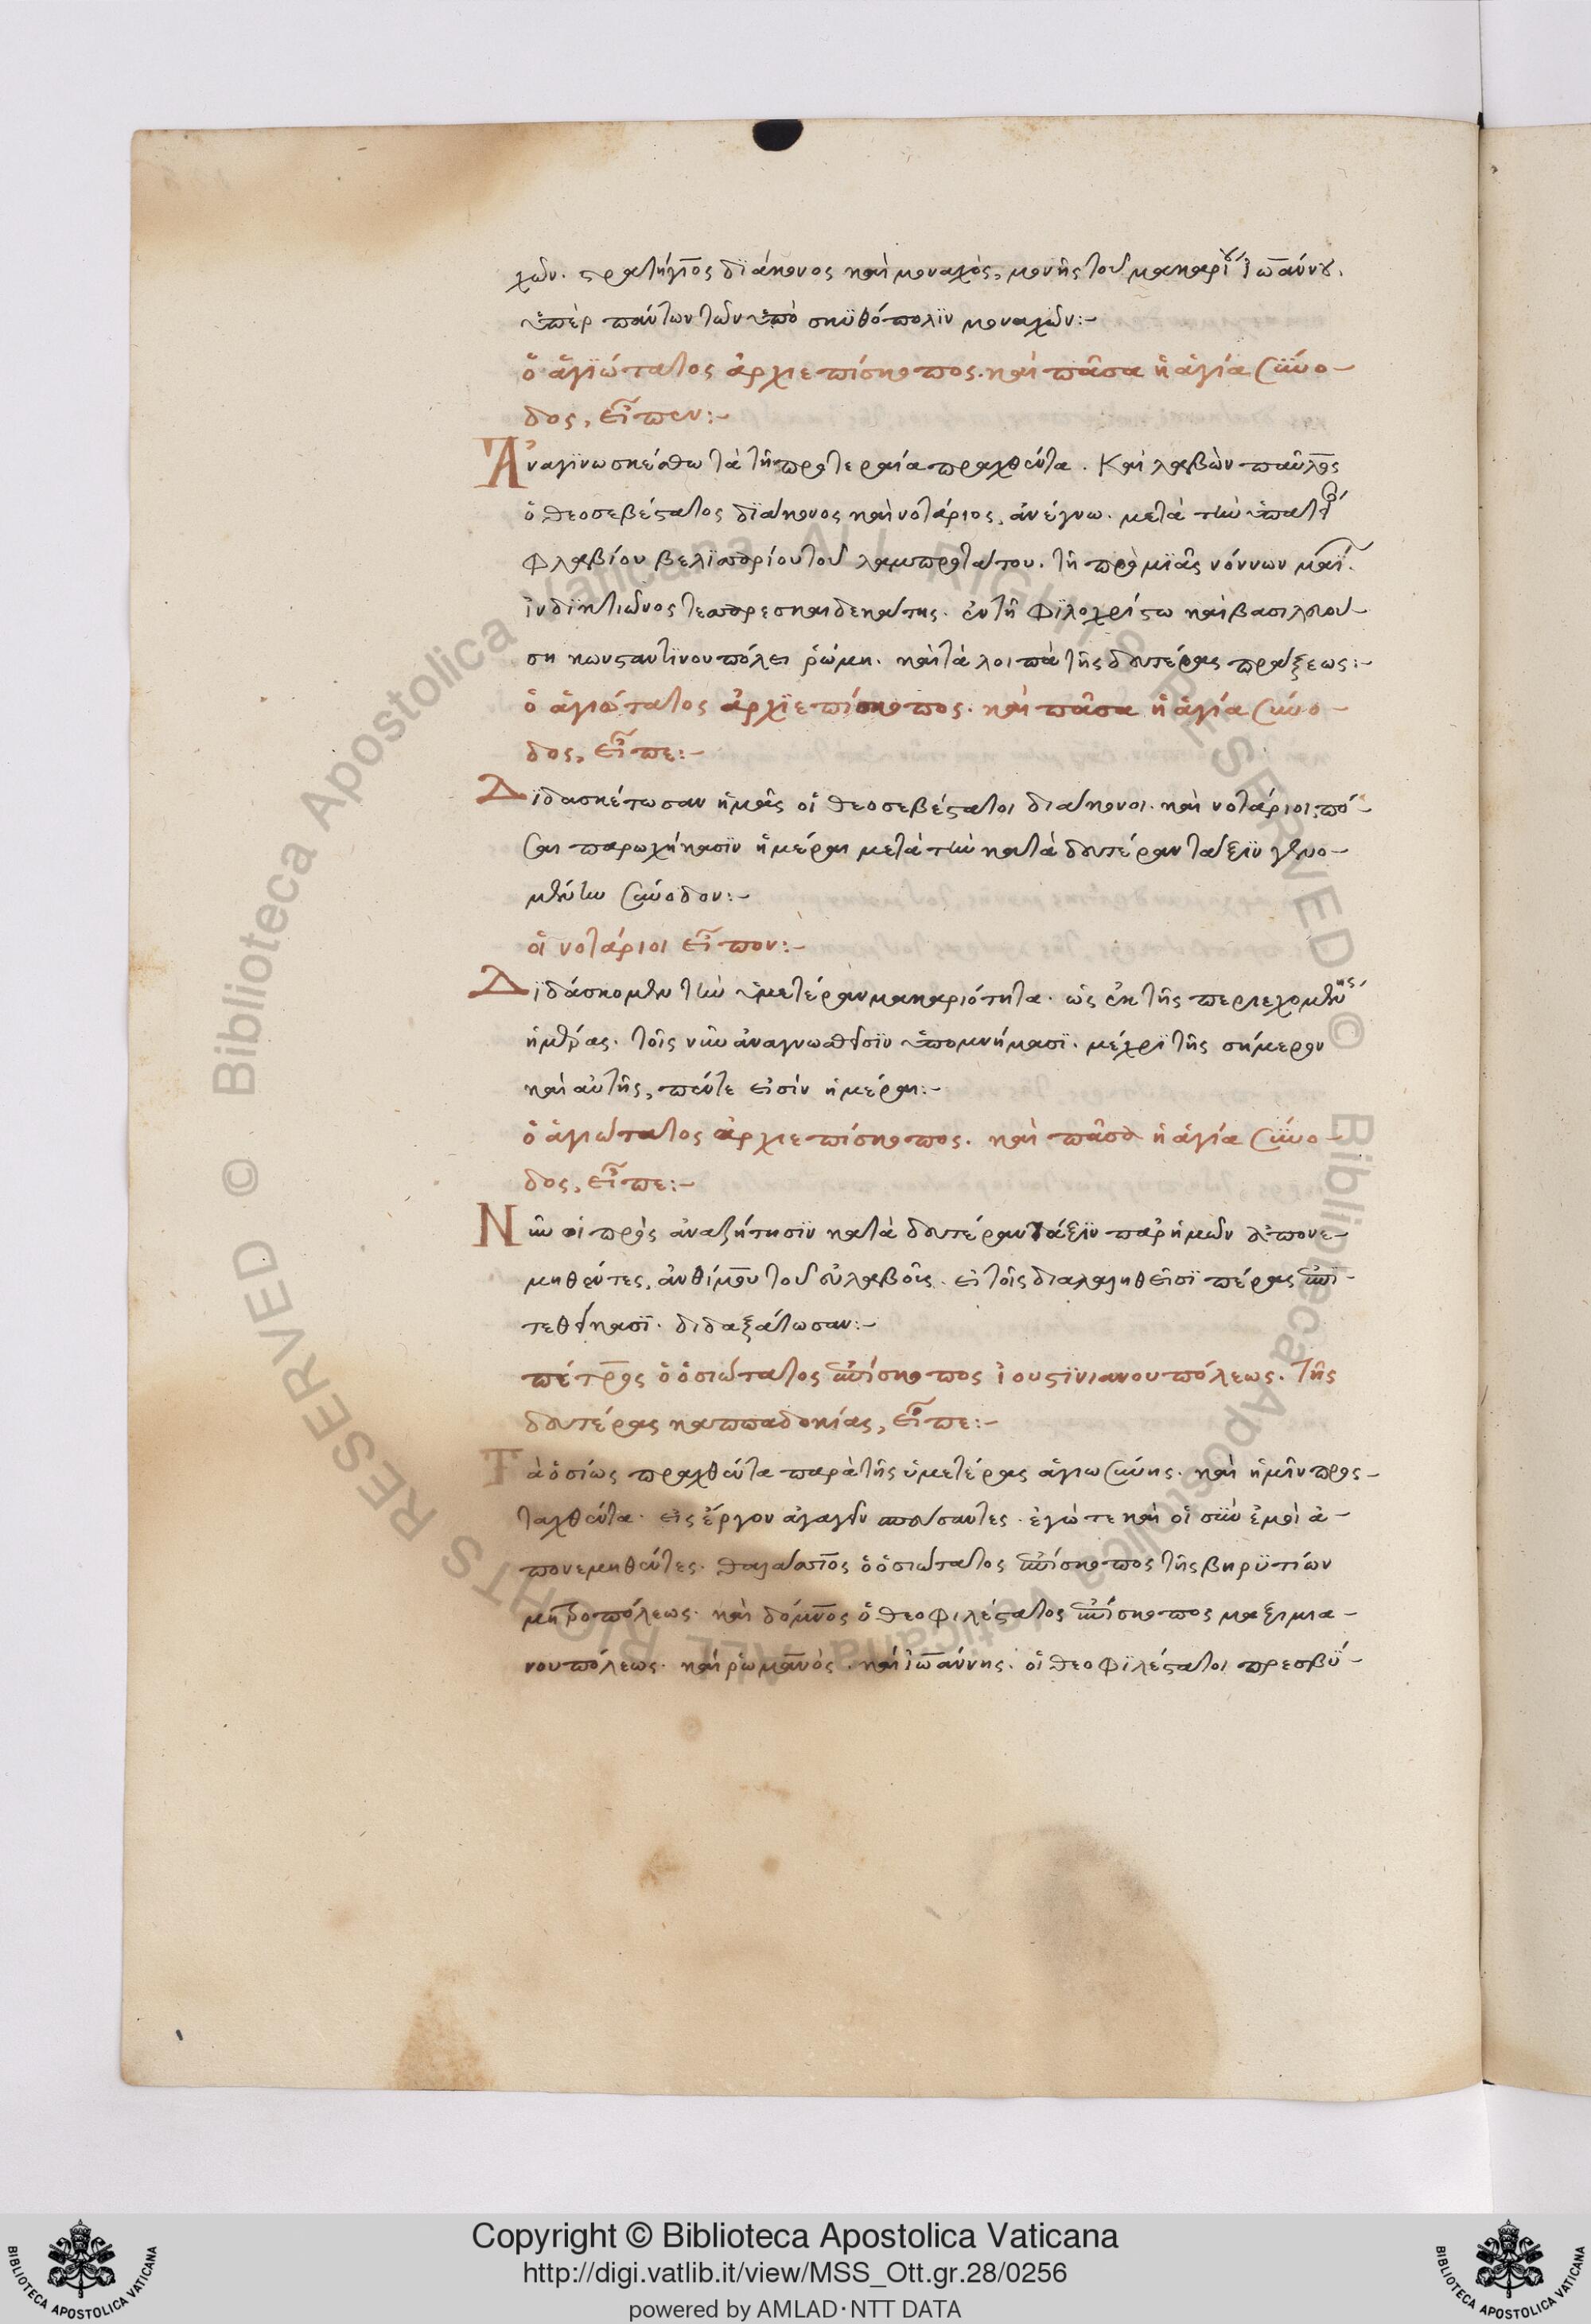 χῶν. στρατήγιος διάκονος καὶ μοναχὸς, μονῆς τοῦ μακαρίου ἰωάννου.
ὑπὲρ πάντων τῶν ὑπὸ σκϋθόπολϊν μοναχῶν:-
ὁ ἁγϊώτατος ἀρχιεπίσκοπος. καὶ πᾶσα ἡ ἁγία σύνο-
δος, εἶπεν:-
Ἀναγϊνωσκέσθω τὰ τῇ προτεραία πραχθέντα. Καὶ λαβὼν παῦλος
ὁ θεοσεβέστατος διάκονος καὶ νοτάριος, ἀνέγνω. μετὰ τὴν ὑπατεί
Φλαβίου βελϊσαρίου τοῦ λαμπροτάτου. τῇ πρὸ μϊᾶς νόννων μαΐ.
ἰνδϊκτιῶνος τεσσαρεσκαιδεκάτης. ἐν τῇ Φϊλοχρίστω καὶ βασιλευού-
ση κωνσταντϊνουπόλει ῥώμη. καὶ τὰ λοιπὰ τῆς δευτέρας πράξεως:-
ὁ ἁγιώτατος ἀρχϊεπίσκοπος. καὶ πᾶσα ἡ ἁγία σύνο-
δος, εἶπε:-
Δϊδασκέτωσαν ἡμᾶς οἱ θεοσεβέστατοι διάκονοι. καὶ νοτάριοι, πό-
σαι παρωχήκασϊν ἡμέραι μετὰ τὴν κατὰ δευτέραν τάξϊν γενο-
μένην σύνοδον:-
οἱ νοτάριοι εἶπον:-
Δϊδάσκομεν τὴν ὑμετέραν μακαριότητα. ὡς ἐκ τῆς περιεχομένης
ἡμέρας. τοῖς νῦν ἀναγνωσθεῖσϊν ὑπομνήμασϊ. μέχρϊ τῆς σήμερον
καὶ αὐτῆς, πέντε εἰσὶν ἡμέραι:-
ὁ ἁγιώτατος ἀρχιεπίσκοπος. καὶ πᾶσα ἡ ἁγία σύνο-
δος, εἶπε:-
Νῦν οἱ πρὸς ἀναζήτησϊν κατὰ δευτέραν τάξϊν παρ' ἡμῶν ἀπονε-
μηθέντες, ἀνθίμου τοῦ εὐλαβοῦς. εἰ τοῖς διαλαληθεῖσϊ πέρας ἐπϊ-
τεθείκασϊ. διδαξάτωσαν:-
πέτρος ὁ ὁσιώτατος ἐπίσκοπος ἰουστϊνιανουπόλεως. τῆς
δευτέρας καππαδοκίας, εἶπε:-
Τὰ ὁσίως πραχθέντα παρὰ τῆς ὑμετέρας ἁγιωσύνης. καὶ ἡμῖν προσ-
ταχθέντα. εἰς ἔργον ἀγαγεῖν σπεύσαντες. ἐγώ τε καὶ οἱ σὺν ἐμοὶ ἀ-
πονεμηθέντες. θαλάσσιος ὁ ὁσιώτατος ἐπίσκοπος τῆς βηρϋτίων
μητροπόλεως. καὶ δόμνος ὁ θεοφιλέστατος ἐπίσκοπος μαξιμια-
νουπόλεως. καὶ ῥωμανὸς. καὶ ἰωάννης. οἱ θεοφϊλέστατοι πρεσβύ-
Copyright © Biblioteca Apostolica Vaticana
http://digi.vatlib.it/view/MSS_Ott.gr.28/0256
powered by AMLAD·NTT DATA
BIBLIOTECA APOSTOLICA VATICANA
BIBLIOTECA APOSTOLICA VATICANA
© Biblioteca Apostolica Vaticana ALL RIGHTS RESERVED
© Biblioteca Apostolica Vaticana ALL RIGHTS RESERVED